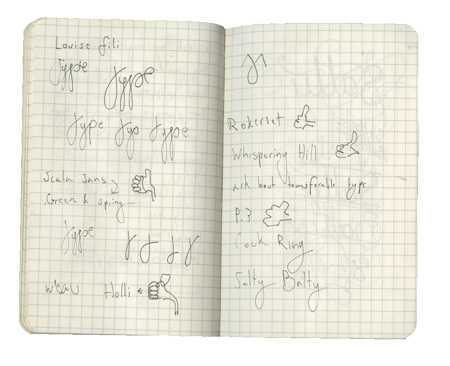 Louise fili
Type Type
Type Typ Type
Scala Sans
Green & spring
Type
Holli
Rokerlet
Whispering Hill
ask about transferable type
P.3
Cock Ring
Salty Balty